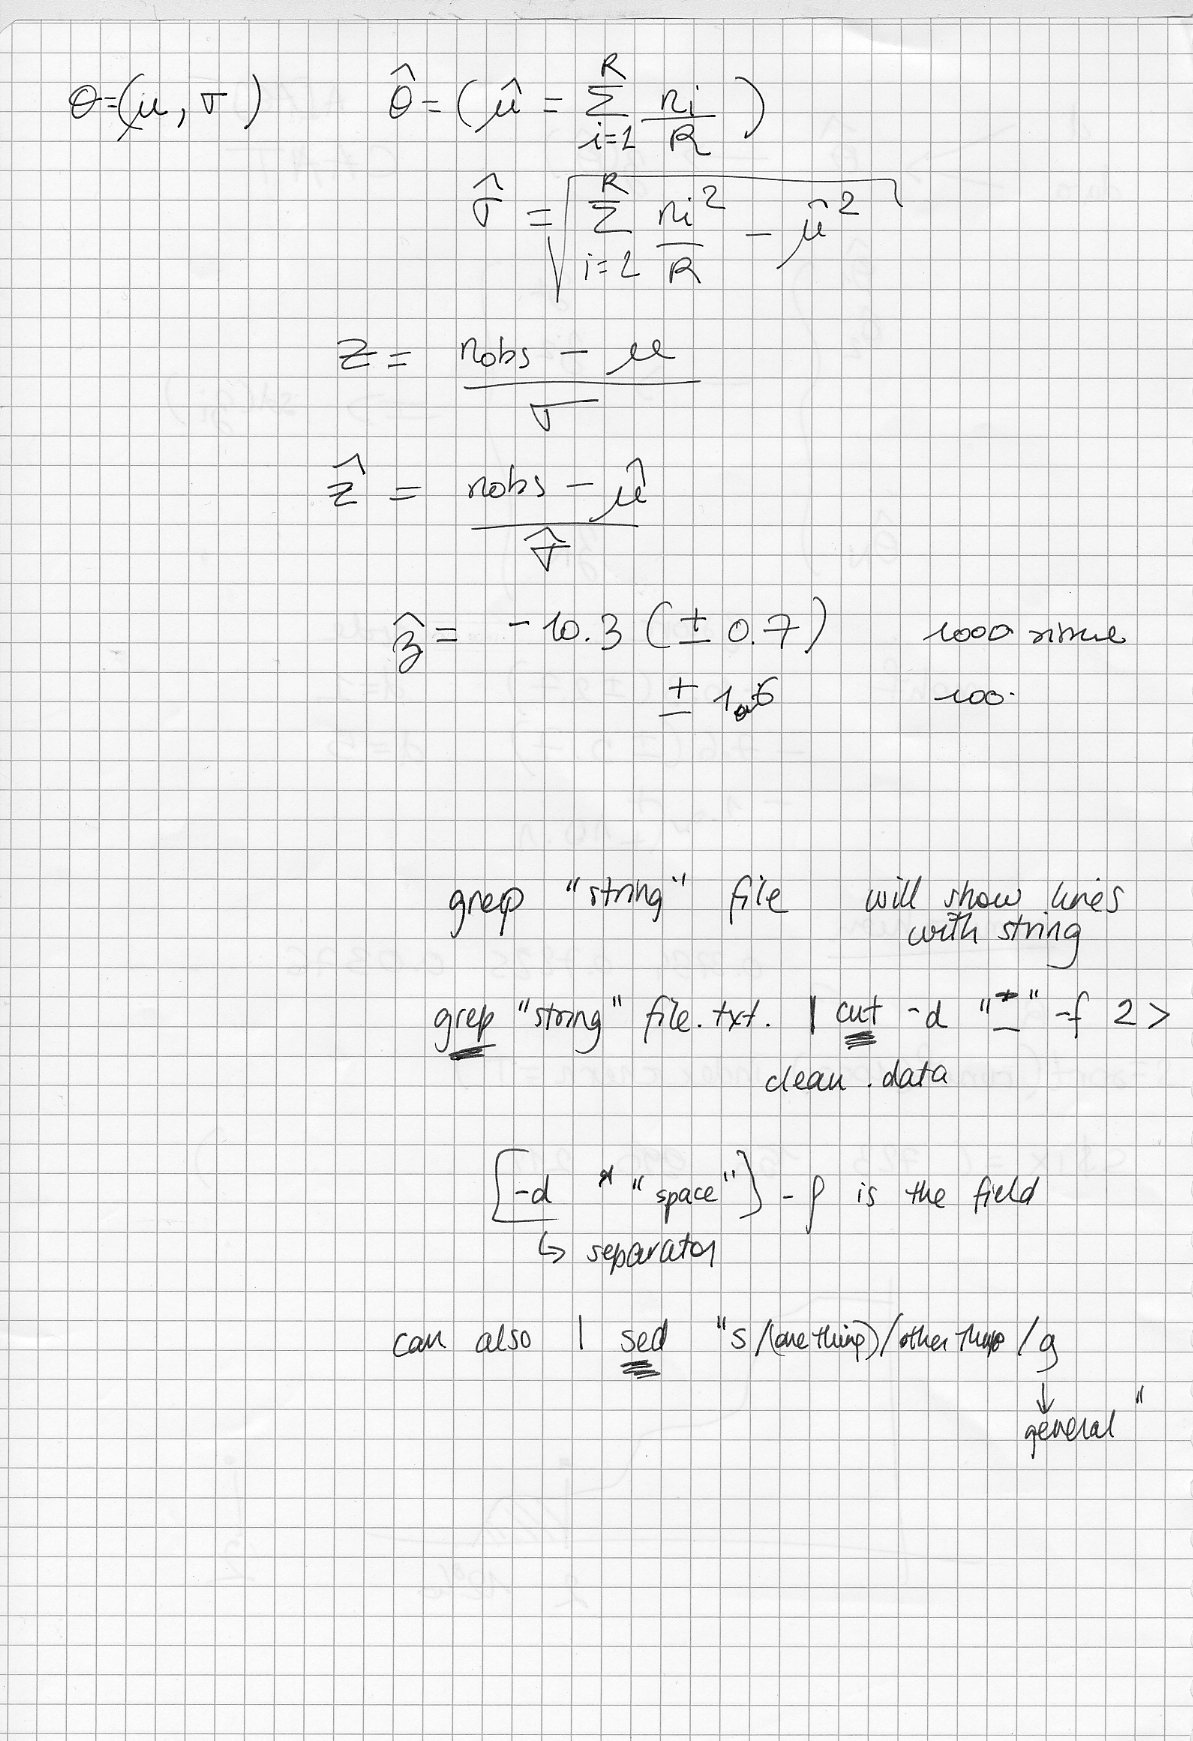 θ=(μ, σ) θ̂=(μ̂ = Σ_{i=1}^{R} n_i/R)
σ̂ = √(Σ_{i=1}^{R} n_i²/R − μ̂²)
z = (nobs − μ)/σ
ẑ = (nobs − μ̂)/σ̂
ẑ = −10.3 (± 0.7) 1000
± 1.6 100.
grep "string" file will show lines
with string
grep "string" file.txt. | cut -d "_" -f 2 >
clean.data
[-d "space"] -f is the field
↳ separator
can also | sed "s/(one thing)/other thing/g
↓
general "